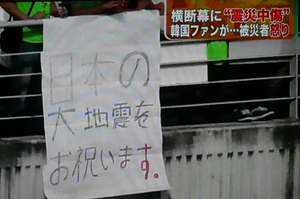 横断幕に“震災中傷”
韓国ファンが…被災者怒り
日本の
大地震を
お祝います。